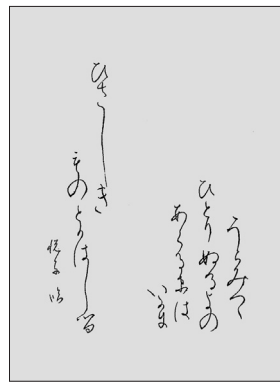 うらみつゝ
ひとりぬるよの
あくるまは
いかに
ひさしき
ものとかはしる
臨